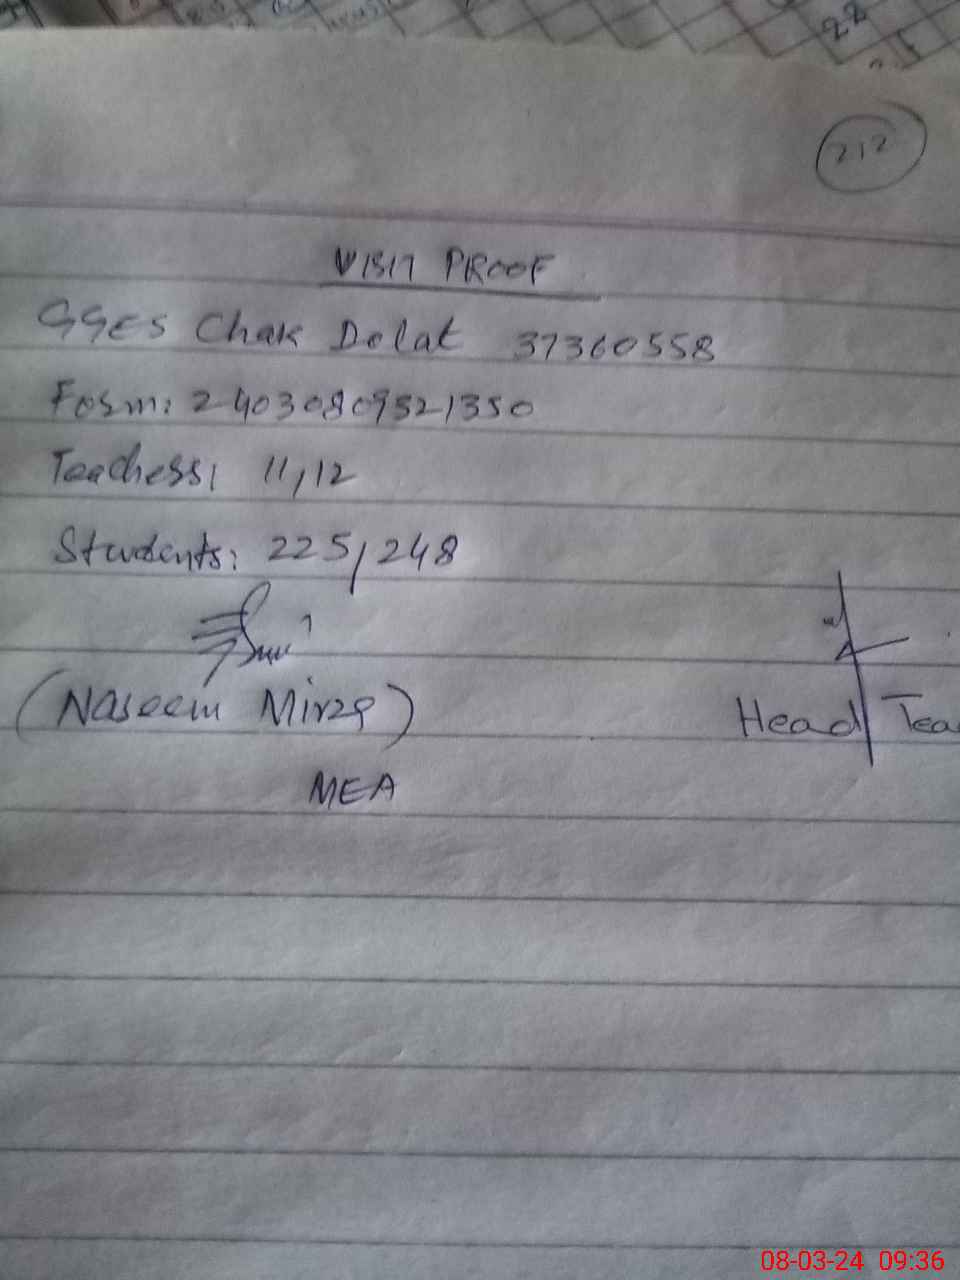 22
212
VISIT PROOF
GGES Chak Dolat 37360558
Form: 24030809521350
Teachers: 11/12
Students: 225/248
(Naseem Mirza)
Head Tea
MEA
08-03-24 09:36